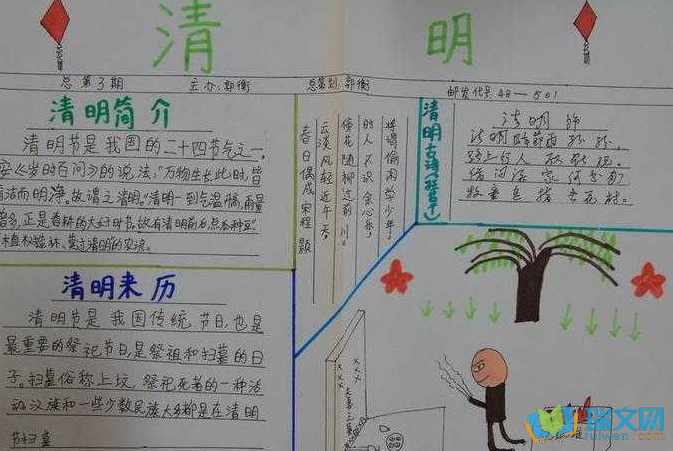 清 明
总第3期 主办:郭衡 总策划:郭衡 邮发代号:48—501
清明简介
清明节是我国的二十四节气之一,
安《岁时百问》的说法,"万物生长此时,皆
清洁而明净。故谓之清明。"清明一到气温
增多,正是春耕的大好时节。故有清明前后,点瓜种豆"
植树造林,莫过清明的农谚。
清明来历
清明节是我国传统节日,也是
最重要的祭祀节日,是祭祖和扫墓的日
子。扫墓俗称上坟,祭祀死者的一种活
动汉族和一些少数民族大多都是在清明
节扫墓
春日偶成 宋程颢
云淡风轻近午天,
傍花随柳过前川。
时人不识余心乐,
将谓偷闲学少年。
清明古诗
清明节
清明时节雨纷纷,
路上行人欲断魂。
借问酒家何处有
牧童遥指杏花村。
xxx
瑞文网
ruiwen.com